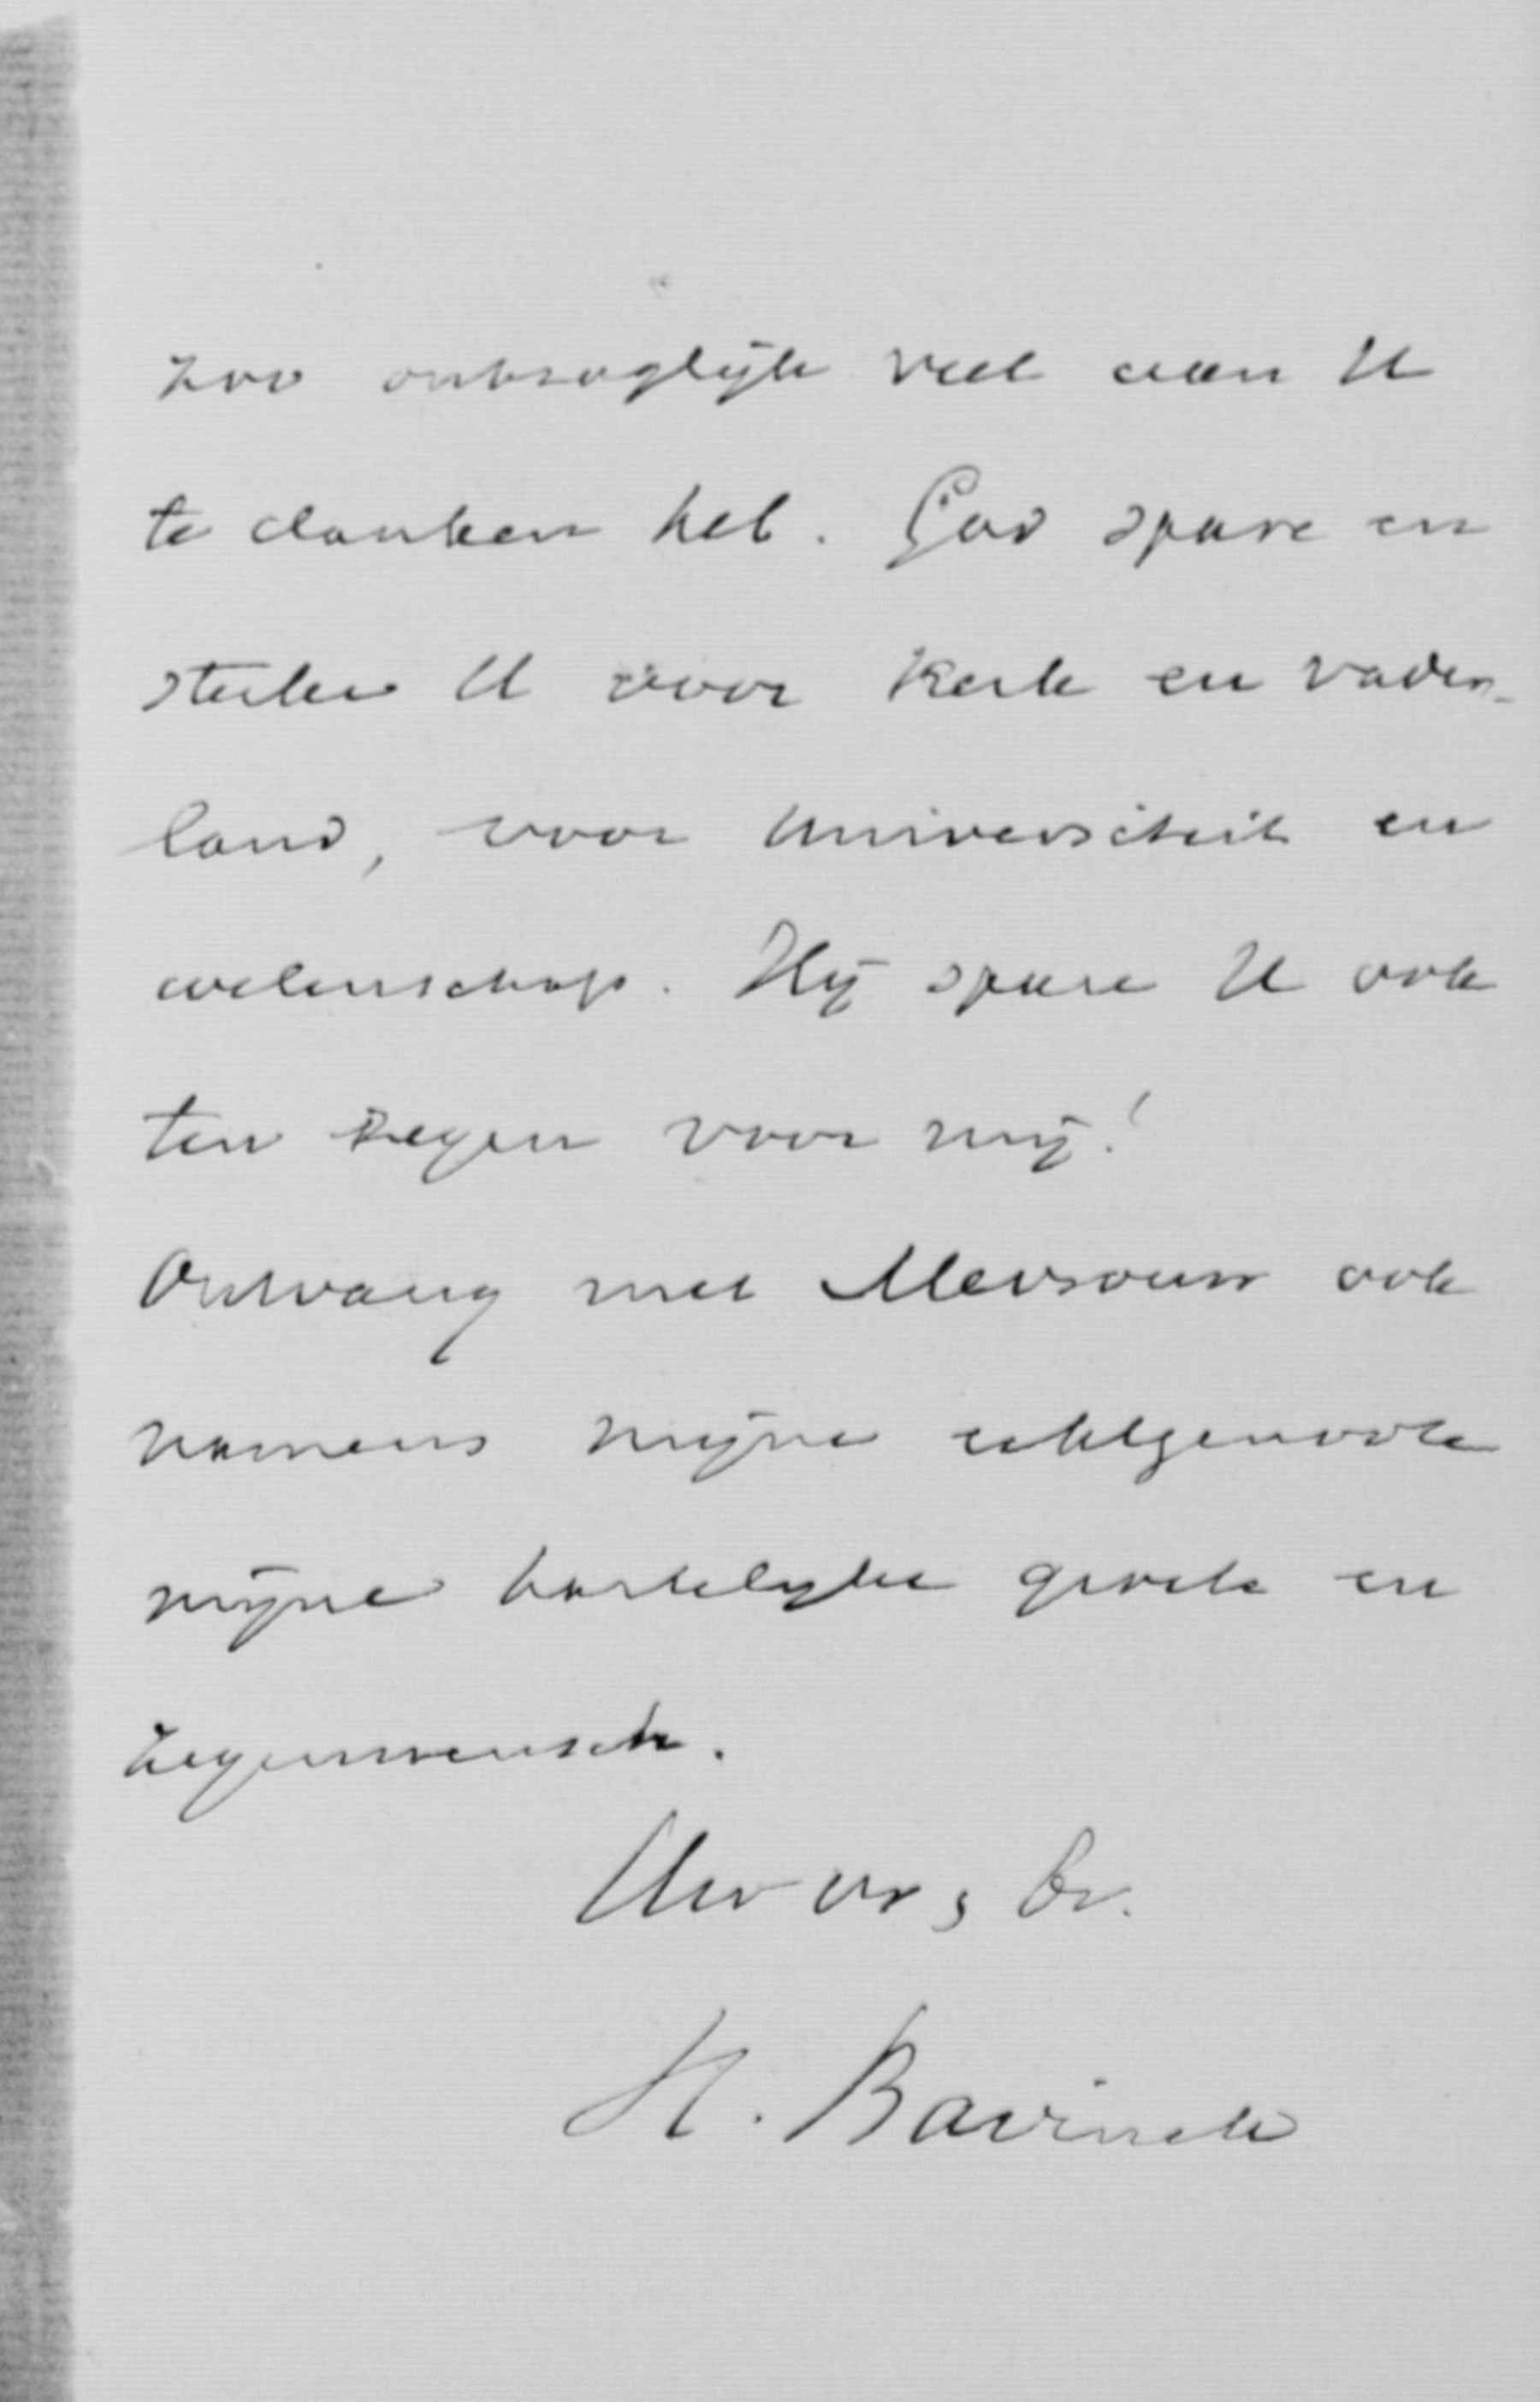 zoo ontzaglijk veel aan U
te danken heb. God spare en
sterke U voor Kerk en vader-
land, voor Universiteit en
wetenschap. Hij spare U ook
ten zegen voor mij!
Ontvang met Mevrouw ook
namens mijne echtgenoote
mijne hartelijke groete en
zegenwensch.
Uw vr, br.
H. Bavinck